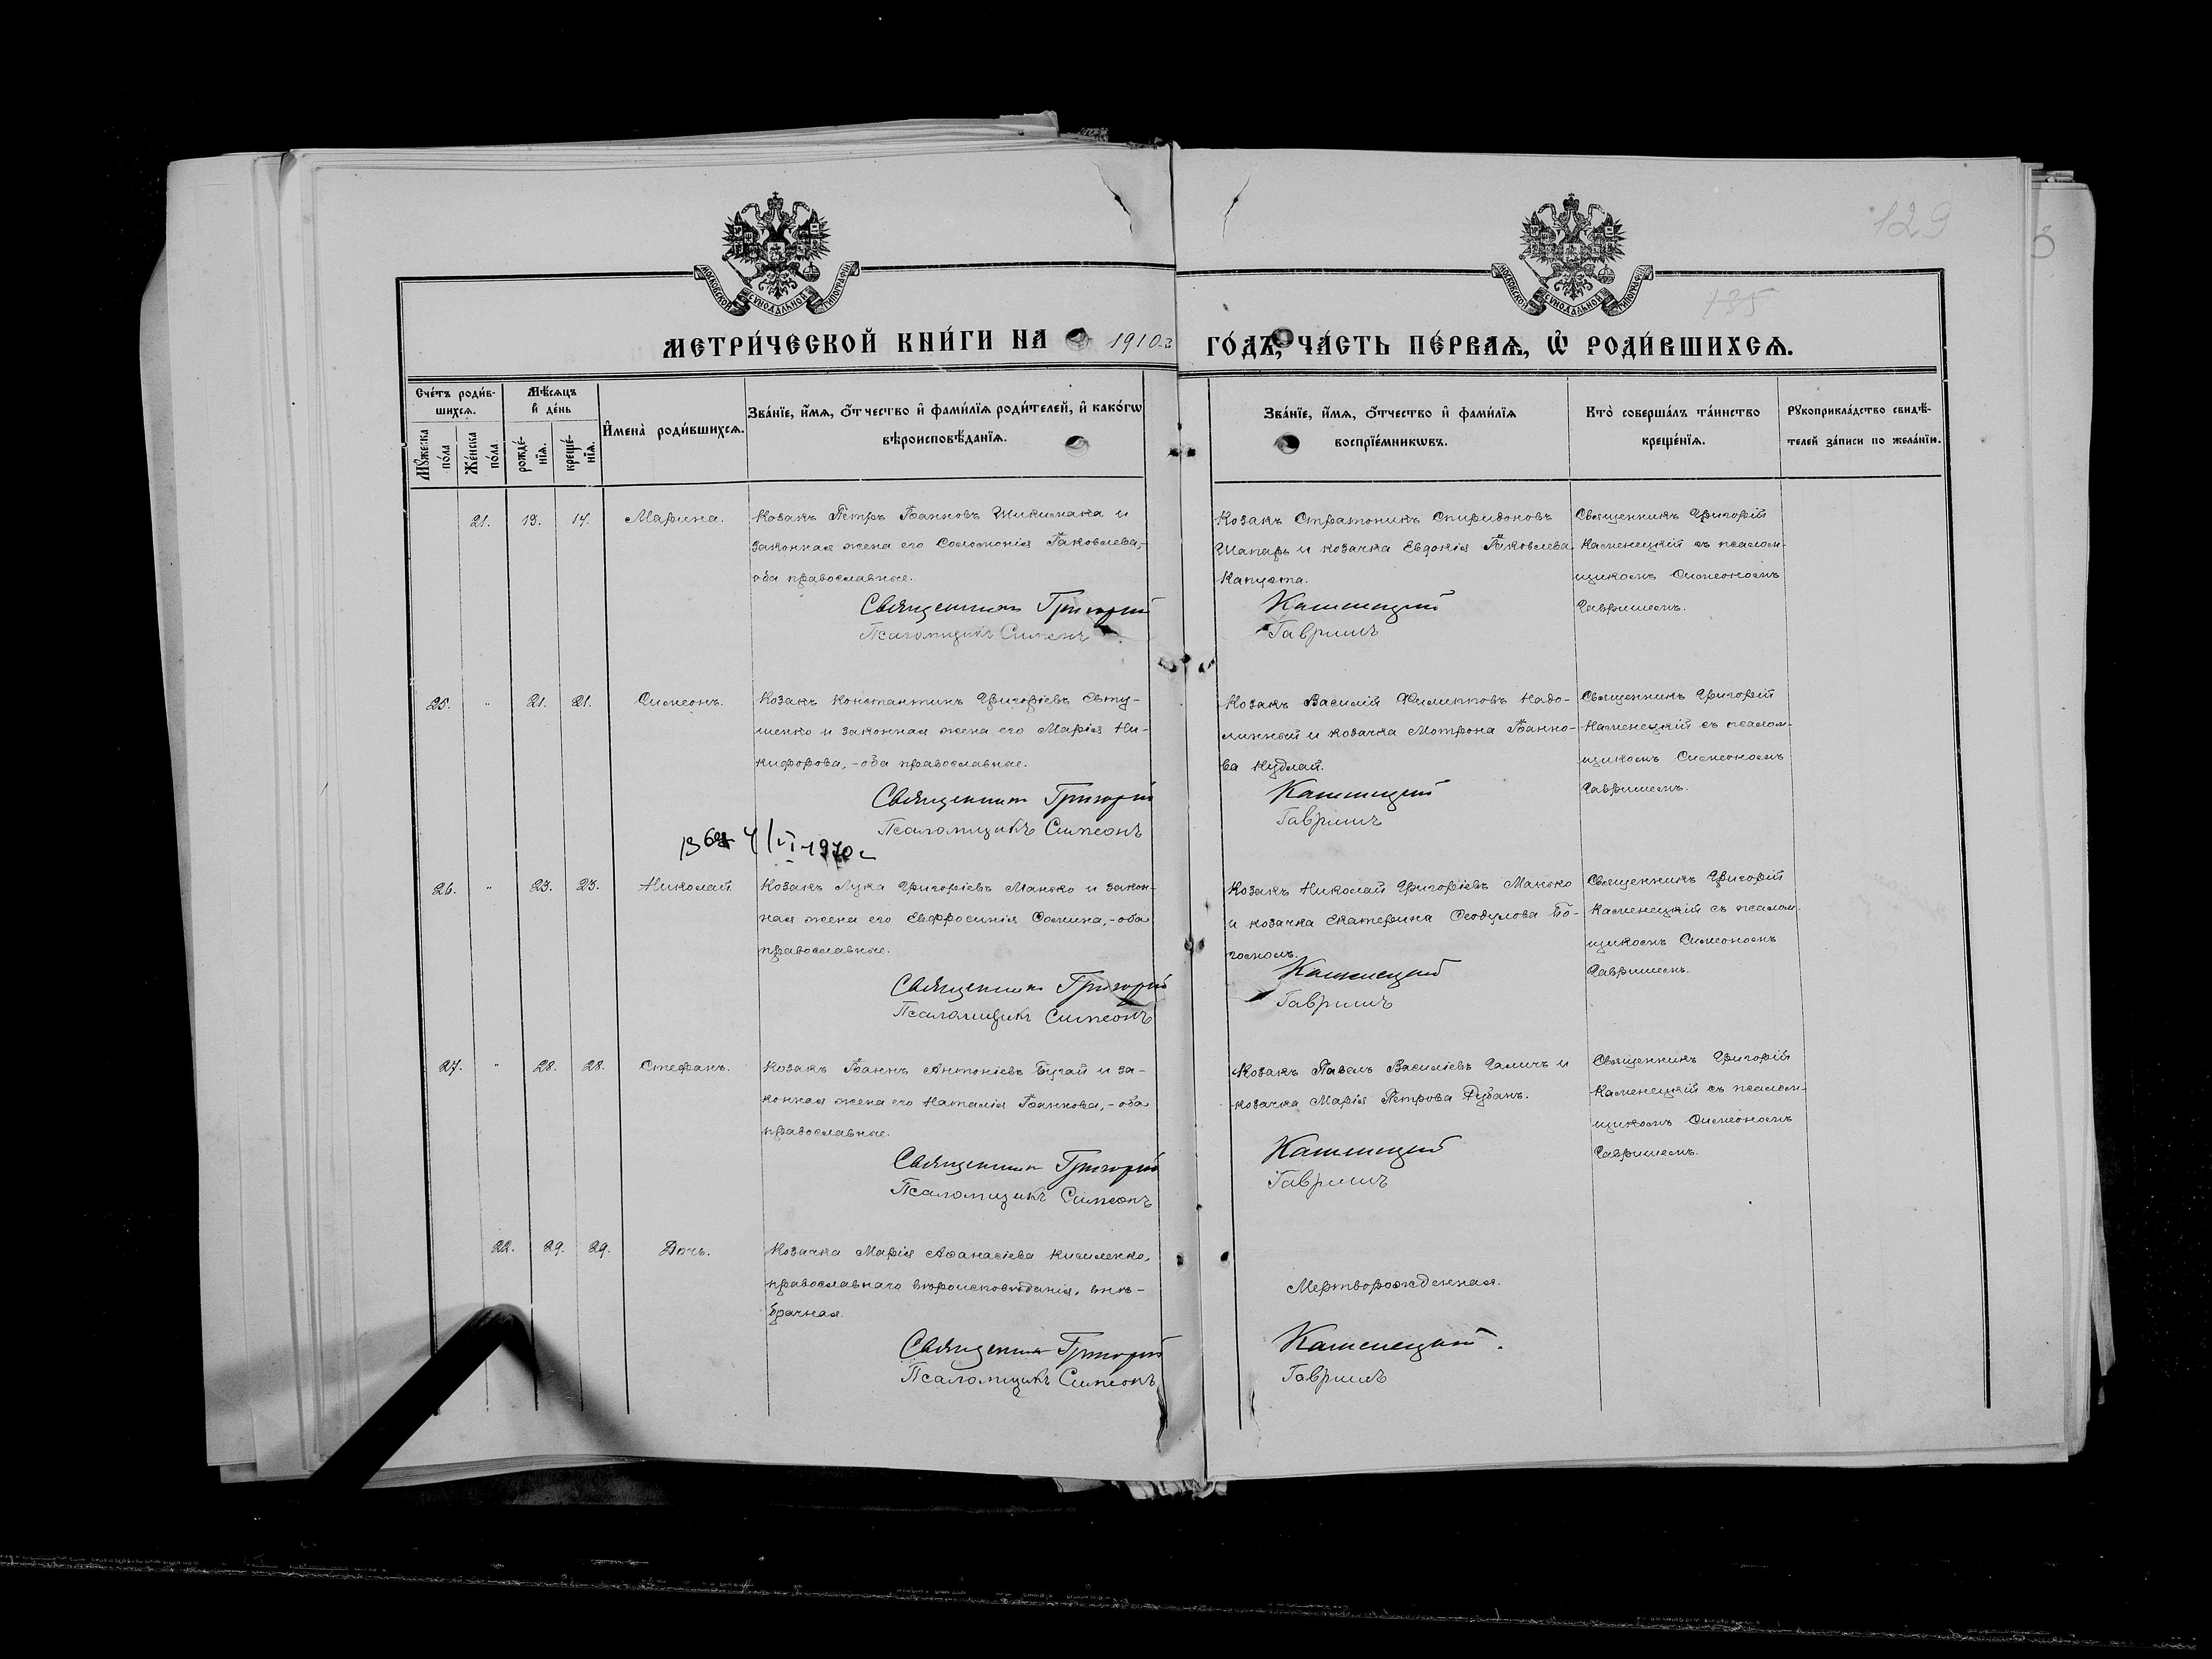 129
135
МОСКОВСКОЙ СѴНОДАЛЬНОЙ ТИПОГРАФІИ
МОСКОВСКОЙ СѴНОДАЛЬНОЙ ТИПОГРАФІИ
МЕТРИ́ЧЕСКОЙ КНИ́ГИ НА 1910 г. ГО́ДЪ, ЧА́СТЬ ПЕ́РВАѦ, Ѡ҆ РОДИ́ВШИХСѦ.
Сче́тъ роди́в-
шихсѧ.
Мꙋ́жеска по́ла
Же́нска по́ла
Мѣ́сѧцъ и҆ де́нь
рожде́-
нїѧ.
креще́-
нїѧ.
И҆мена̀ роди́вшихсѧ.
Зва́нїе, и҆́мѧ, ѻ҆́тчество и҆ фами́лїѧ роди́телей, и҆ како́гѡ
вѣроисповѣ́данїѧ.
Зва́нїе, и҆́мѧ, ѻ҆́тчество и҆ фами́лїѧ
воспрїе́мникѡвъ.
Кто̀ соверша́лъ та́инство
креще́нїѧ.
Рꙋкоприкла́дство свидѣ́-
телей за́писи по жела́нїю.
21. 13. 14. Марина.
Козакъ Петръ Іоанновъ Шикимака и
законная жена его Соломонія Іаковлева,-
оба православные.
Священникъ Григорій
Псаломщикъ Симеонъ
Козакъ Стратоникъ Спиридоновъ
Шапарь и козачка Евдокія Іаковлева
Капуста.
Каменецкій
Гавришъ
Священникъ Григорій
Каменецкій съ псалом-
щикомъ Симеономъ
Гавришемъ.
25. " 21. 21. Симеонъ.
Козакъ Константинъ Григоріевъ Евту-
шенко и законная жена его Марія Ни-
кифорова, - оба православные.
Священникъ Григорій
Псаломщикъ Симеонъ
Козакъ Василій Филипповъ Надо-
линный и козачка Мотрона Іоанно-
ва Кудлай.
Каменецкій
Гавришъ
Священникъ Григорій
Каменецкій съ псалом-
щикомъ Симеономъ
Гавришемъ.
1970 г
26. " 23. 23. Николай.
Козакъ Лука Григоріевъ Манско и закон-
ная жена его Евфросинія Сомина, - оба
православные.
Священникъ Григорій
Псаломщикъ Симеонъ
Козакъ Николай Григоріевъ Манско
и козачка Екатерина Ѳеодулова
Каменецкій
Гавришъ
Священникъ Григорій
Каменецкій съ псалом-
щикомъ Симеономъ
Гавришемъ.
27. " 28. 28. Стефанъ.
Козакъ Іоаннъ Антоніевъ Бугай и за-
конная жена его Наталія Іоаннова, - оба
православные.
Священникъ Григорій
Псаломщикъ Симеонъ
Козакъ Павелъ Василіевъ Галичъ и
козачка Марія Петрова Рубанъ.
Каменецкій
Гавришъ
Священникъ Григорій
Каменецкій съ псалом-
щикомъ Симеономъ
Гавришемъ.
22. 29. 29. Дочь.
Козачка Марія Аѳанасіева Кисиленко,
православнаго вѣроисповѣданія, внѣ-
брачная.
Священникъ Григорій
Псаломщикъ Симеонъ
Мертворожденная.
Каменецкій.
Гавришъ